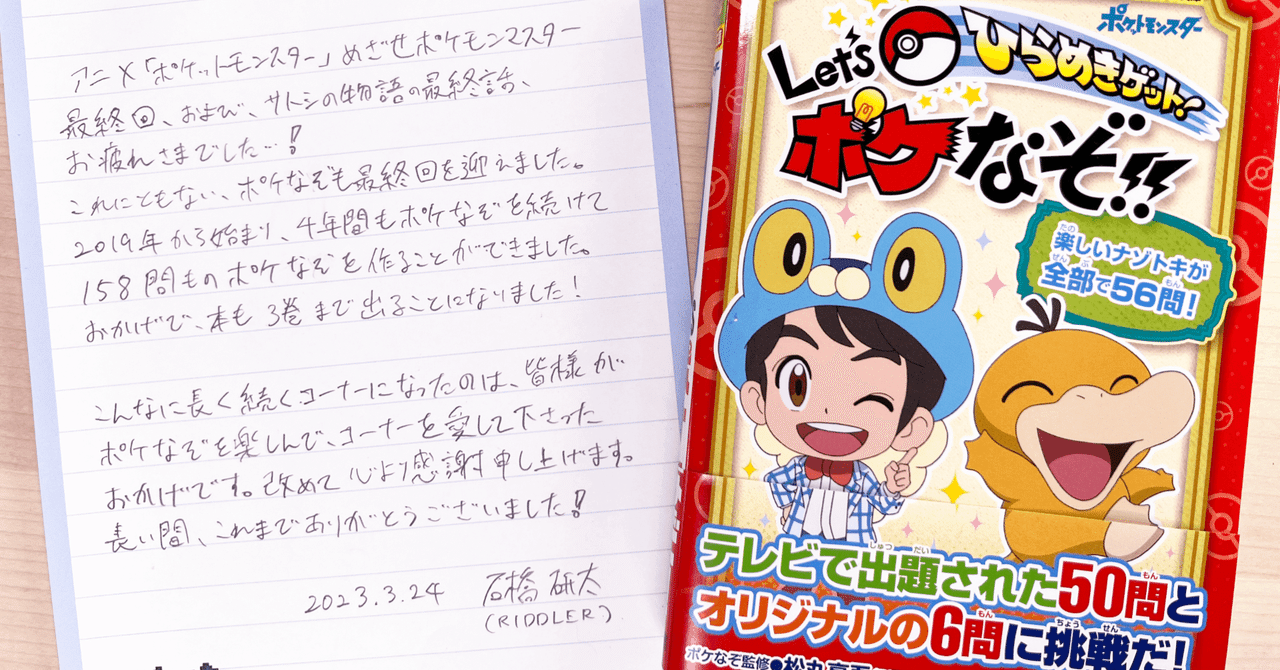 アニメ「ポケットモンスター」めざせポケモンマスター
最終回、および、サトシの物語の最終話、
お疲れさまでした…!
これにともない、ポケなぞも最終回を迎えました。
2019年から始まり、4年間もポケなぞを続けて
158問ものポケなぞを作ることができました。
おかげで、本も3巻まで出ることになりました!
こんなに長く続くコーナーになったのは、皆様が
ポケなぞを楽しんで、コーナーを愛して下さった
おかげです。改めて心より感謝申し上げます。
長い間、これまでありがとうございました!
2023.3.24 石橋研太
(RIDDLER)
ポケットモンスター
Let's ひらめきゲット!
ポケなぞ!!
楽しいナゾトキが
全部で56問!
テレビで出題された50問と
オリジナルの6問に挑戦だ!
ポケなぞ監修●松丸亮吾